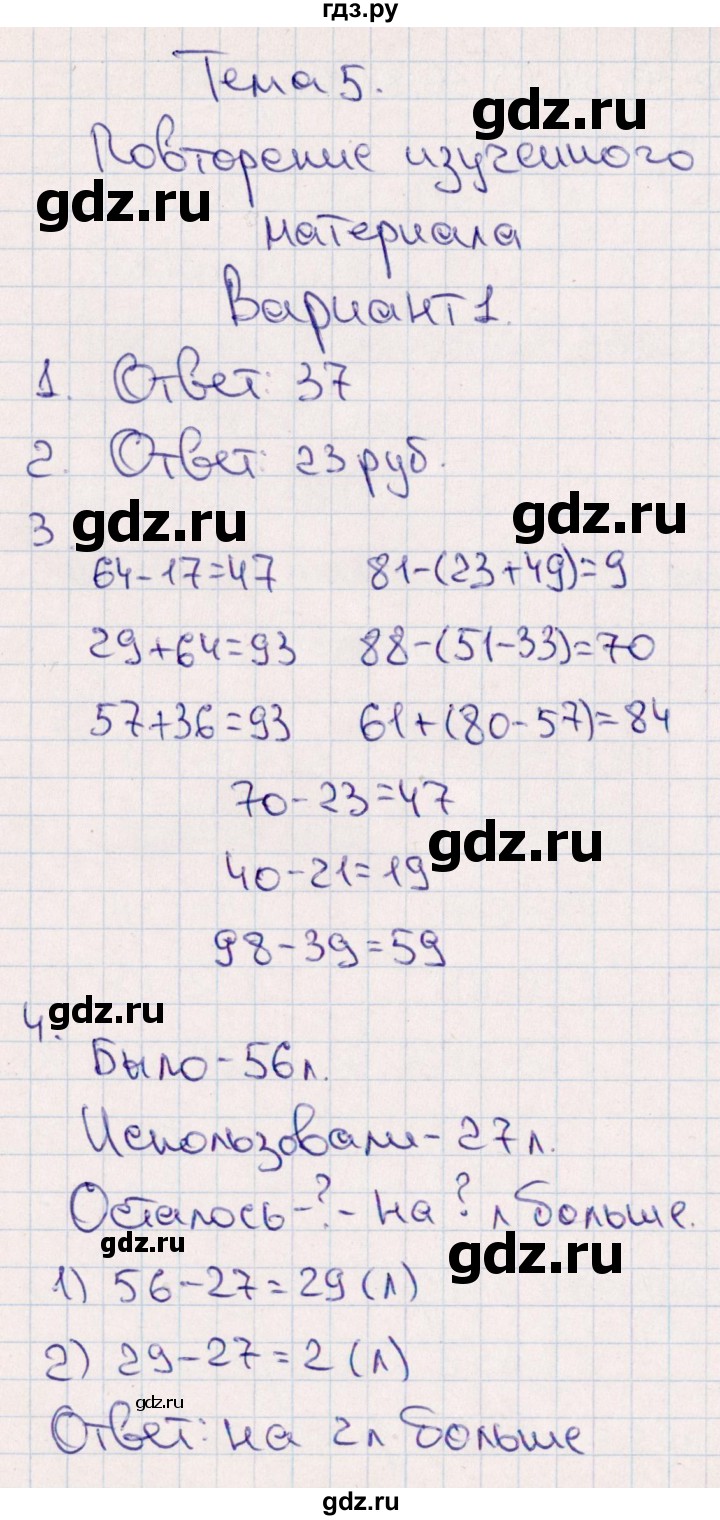 гдз.ру
Тема 5.
gdz.ru
Повторение изученного
gdz.ru
материала
Вариант 1.
1. Ответ: 37
2. Ответ: 23 руб.
gdz.ru
gdz.ru
3.
64-17=47 81-(23+49)=9
29+64=93 88-(51-33)=70
57+36=93 61+(80-57)=84
70-23=47
gdz.ru
40-21=19
98-39=59
gdz.ru
4.
Было-56л.
Использовали-27л.
Осталось-?-на ? л больше.
gdz.ru
gdz.ru
1) 56-27=29(л)
2) 29-27=2(л)
gdz.ru
Ответ: на 2л больше
gdz.ru